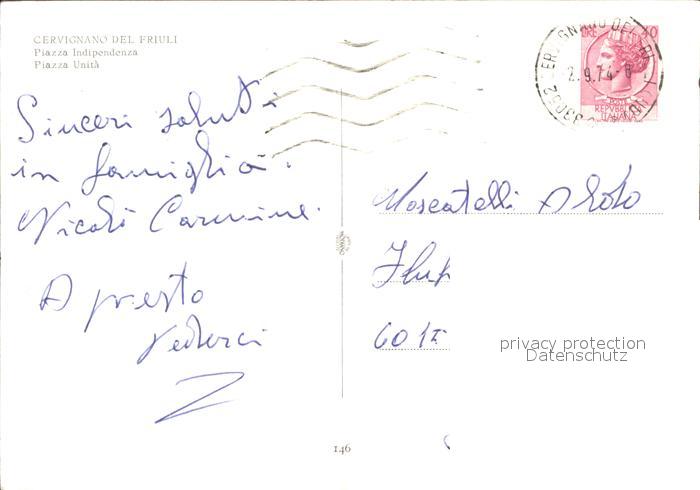 CERVIGNANO DEL FRIULI
Piazza Indipendenza
Piazza Unità
Sinceri saluti
in famiglia.
Nicolò Carmine.
A presto
vederci
LIRE 40
POSTE
REPUBBLICA
ITALIANA
CERVIGNANO DEL FRIULI
2.9.74
33052
Moscatelli
601
privacy protection
Datenschutz
146